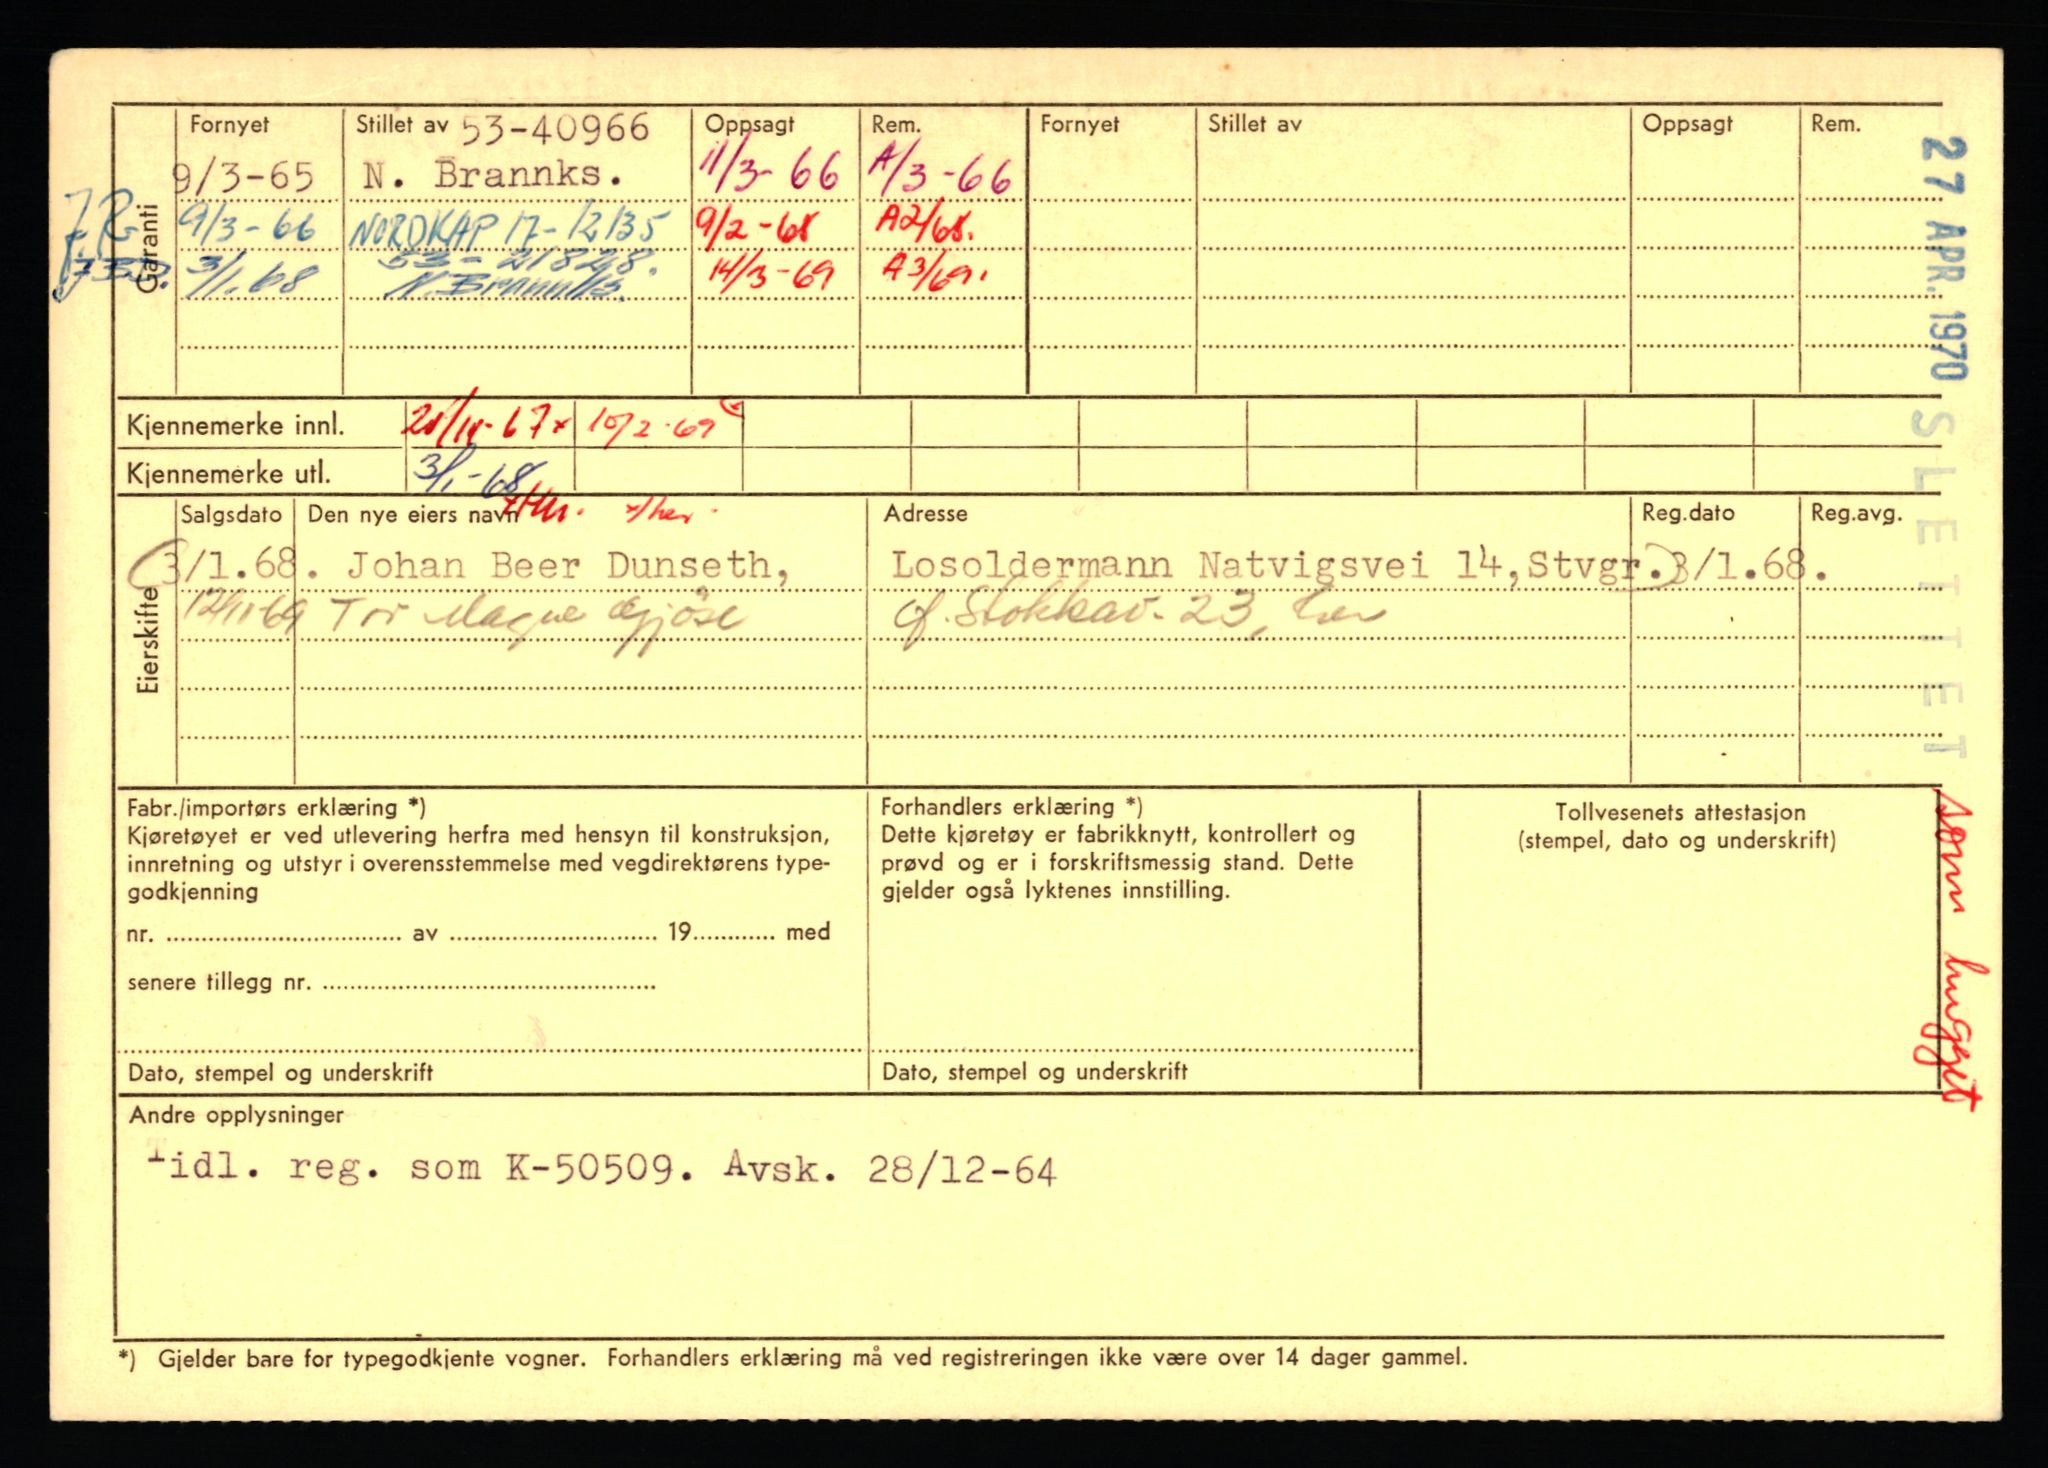 Fornyet Stillet av 53-40966 Oppsagt Rem. Fornyet Stillet av Oppsagt Rem.
Garanti
9/3-65 N. Brannks. 11/3-66 A/3-66
9/3-66 NORDKAP 17-12135 9/2-68 A2/68.
3/1.68 53-21828. 14/3-69 A3/69.
N. Brannks.
Kjennemerke innl. 10/2-69
Kjennemerke utl. 3/1-68
Eierskifte
Salgsdato Den nye eiers navn Adresse Reg.dato Reg.avg.
3/1.68. Johan Beer Dunseth, Losoldermann Natvigsvei 14, Stvgr. 3/1.68.
12/11-69 Tor Magne Gjøse Stokkav. 23, her
Fabr./importørs erklæring *)
Kjøretøyet er ved utlevering herfra med hensyn til konstruksjon,
innretning og utstyr i overensstemmelse med vegdirektørens type-
godkjenning
nr. .......... av .......... 19.......... med
senere tillegg nr. ..........
Dato, stempel og underskrift
Forhandlers erklæring *)
Dette kjøretøy er fabrikknytt, kontrollert og
prøvd og er i forskriftsmessig stand. Dette
gjelder også lyktenes innstilling.
Dato, stempel og underskrift
Tollvesenets attestasjon
(stempel, dato og underskrift)
27 APR. 1970 SLETTET
som hugget
Andre opplysninger
Tidl. reg. som K-50509. Avsk. 28/12-64
*) Gjelder bare for typegodkjente vogner. Forhandlers erklæring må ved registreringen ikke være over 14 dager gammel.